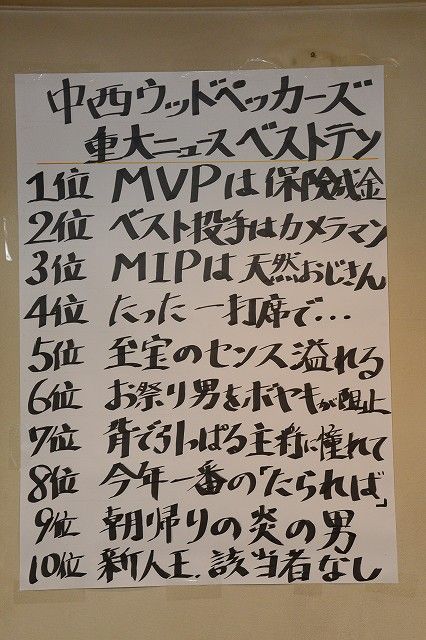 中西ウッドペッカーズ
重大ニュースベストテン
1位 MVPは保険成金
2位 ベスト投手はカメラマン
3位 MIPは天然おじさん
4位 たった一打席で...
5位 至宝のセンス溢れる
6位 お祭り男をボヤキが阻止
7位 背で引っぱる主将に憧れて
8位 今年一番の「たられば」
9位 朝帰りの炎の男
10位 新人王、該当者なし